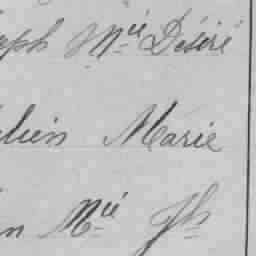 eph Mie Désiré
lien Marie
n Mie Jh